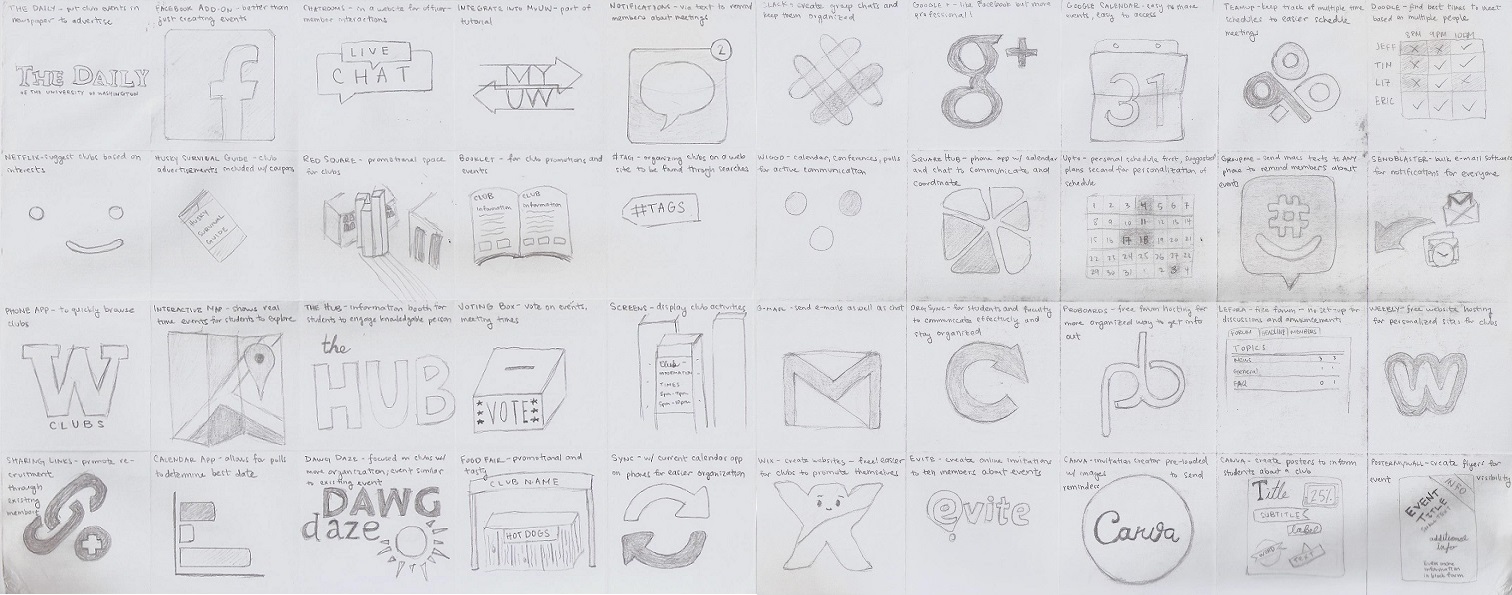 THE DAILY - put club events in
newspaper to advertise
THE DAILY
OF THE UNIVERSITY OF WASHINGTON
FACEBOOK ADD-ON - better than
just creating events
f
CHATROOMS - in a website for officer-
member interactions
LIVE
CHAT
INTEGRATE INTO MYUW - part of
tutorial
MY
UW
NOTIFICATIONS - via text to remind
members about meetings
2
SLACK - create group chats and
keep them organized
GOOGLE + - like Facebook but more
professional!
g+
GOOGLE CALENDAR - easy to share
events, easy to access
31
TEAMUP - keep track of multiple time
schedules to easier schedule
meetings
DOODLE - find best times to meet
based on multiple people
8PM 9PM 10PM
JEFF
TIN
LIZ
ERIC
NETFLIX - suggest clubs based on
interests
HUSKY SURVIVAL GUIDE - club
advertisements included w/ coupons
HUSKY
SURVIVAL
GUIDE
RED SQUARE - promotional space
for clubs
BOOKLET - for club promotions and
events
CLUB
Information
CLUB
Information
#TAG - organizing clubs on a web
site to be found through searches
#TAGS
WIGGIO - calendar, conferences, polls
for active communication
SQUARE HUB - phone app w/ calendar
and chat to communicate and
coordinate
UPTO - personal schedule first, suggested
plans second for personalization of
schedule
1 2 3 4 5 6 7
8 9 10 11 12 13 14
15 16 17 18 19 20 21
22 23 24 25 26 27 28
29 30 31 1 2 3 4
GROUPME - send mass texts to ANY
phone to remind members about
events
#
SENDBLASTER - bulk e-mail software
for notifications for everyone
PHONE APP - to quickly browse
clubs
W
CLUBS
INTERACTIVE MAP - shows real
time events for students to explore
THE HUB - information booth for
students to engage knowledgable person
the
HUB
VOTING BOX - vote on events,
meeting times
VOTE
SCREENS - display club activities
Club
INFORMATION
TIMES
G-MAIL - send e-mails as well as chat
ORGSYNC - for students and faculty
to communicate effectively and
stay organized
PROBOARDS - free forum hosting for
more organized way to get info
out
pb
LEFORA - free forum - no set-up for
discussions and announcements
FORUM HEADLINE MEMBERS
TOPICS
News
General
FAQ 0 1
WEEBLY - free website hosting
for personalized sites for clubs
W
SHARING LINKS - promote re-
cruitment
through
existing
members
CALENDAR APP - allows for polls
to determine best date
DAWG DAZE - focused on clubs w/
more organization; event similar
to existing event
DAWG
daze
FOOD FAIR - promotional and
tasty
CLUB NAME
HOT DOGS
SYNC - w/ current calendar app
on phones for easier organization
WIX - create websites - free! easier
for clubs to promote themselves
EVITE - create online invitations
to ten members about events
evite
CANVA - invitation creator pre-loaded
w/ images to send
reminders
Canva
CANVA - create posters to inform
students about a club
Title
25%
SUBTITLE
label
WORD
TEXT
POSTERMYWALL - create flyers for
event visibility
INFO
EVENT
TITLE
additional
info
Even more
information
in block form